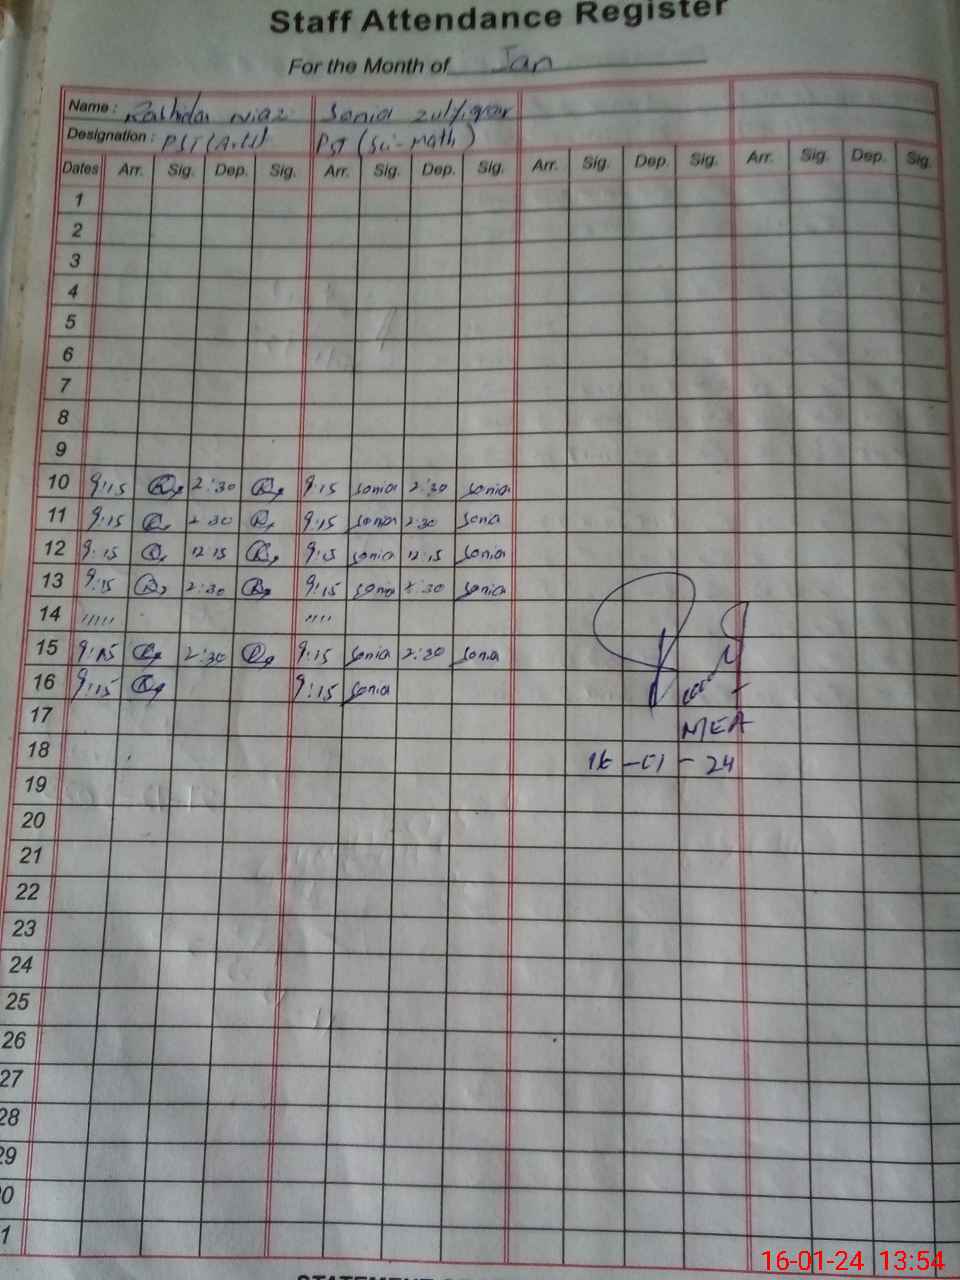 Staff Attendance Register
For the Month of Jan
Name : Rashida Niaz Sonia Zulfiqar
Designation : PST (Arts) PST (Sci-Math)
Dates Arr. Sig. Dep. Sig. Arr. Sig. Dep. Sig. Arr. Sig. Dep. Sig. Arr. Sig. Dep. Sig.
1
2
3
4
5
6
7
8
9
10 9:15 2:30 9:15 Sonia 2:30 Sonia
11 9:15 2:30 9:15 Sonia 2:30 Sonia
12 9:15 12:15 9:15 Sonia 12:15 Sonia
13 9:15 2:30 9:15 Sonia 2:30 Sonia
14 ,,,,, ,,,,
15 9:15 2:30 9:15 Sonia 2:30 Sonia
16 9:15 9:15 Sonia
17 MEA
18 16-01-24
19
20
21
22
23
24
25
26
27
28
29
30
31
16-01-24 13:54